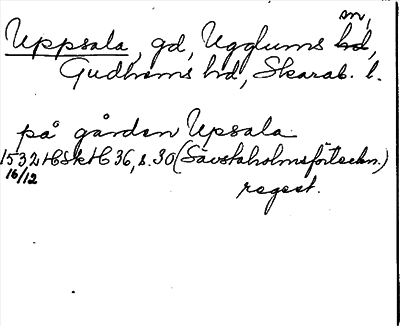 Uppsala, gd, Ugglums sn,
Gudhems hd, Skarab. l.
på gården Upsala
1532 HSkH 36, s. 30 (Sävstaholmsförteckn.)
16/12
regest.